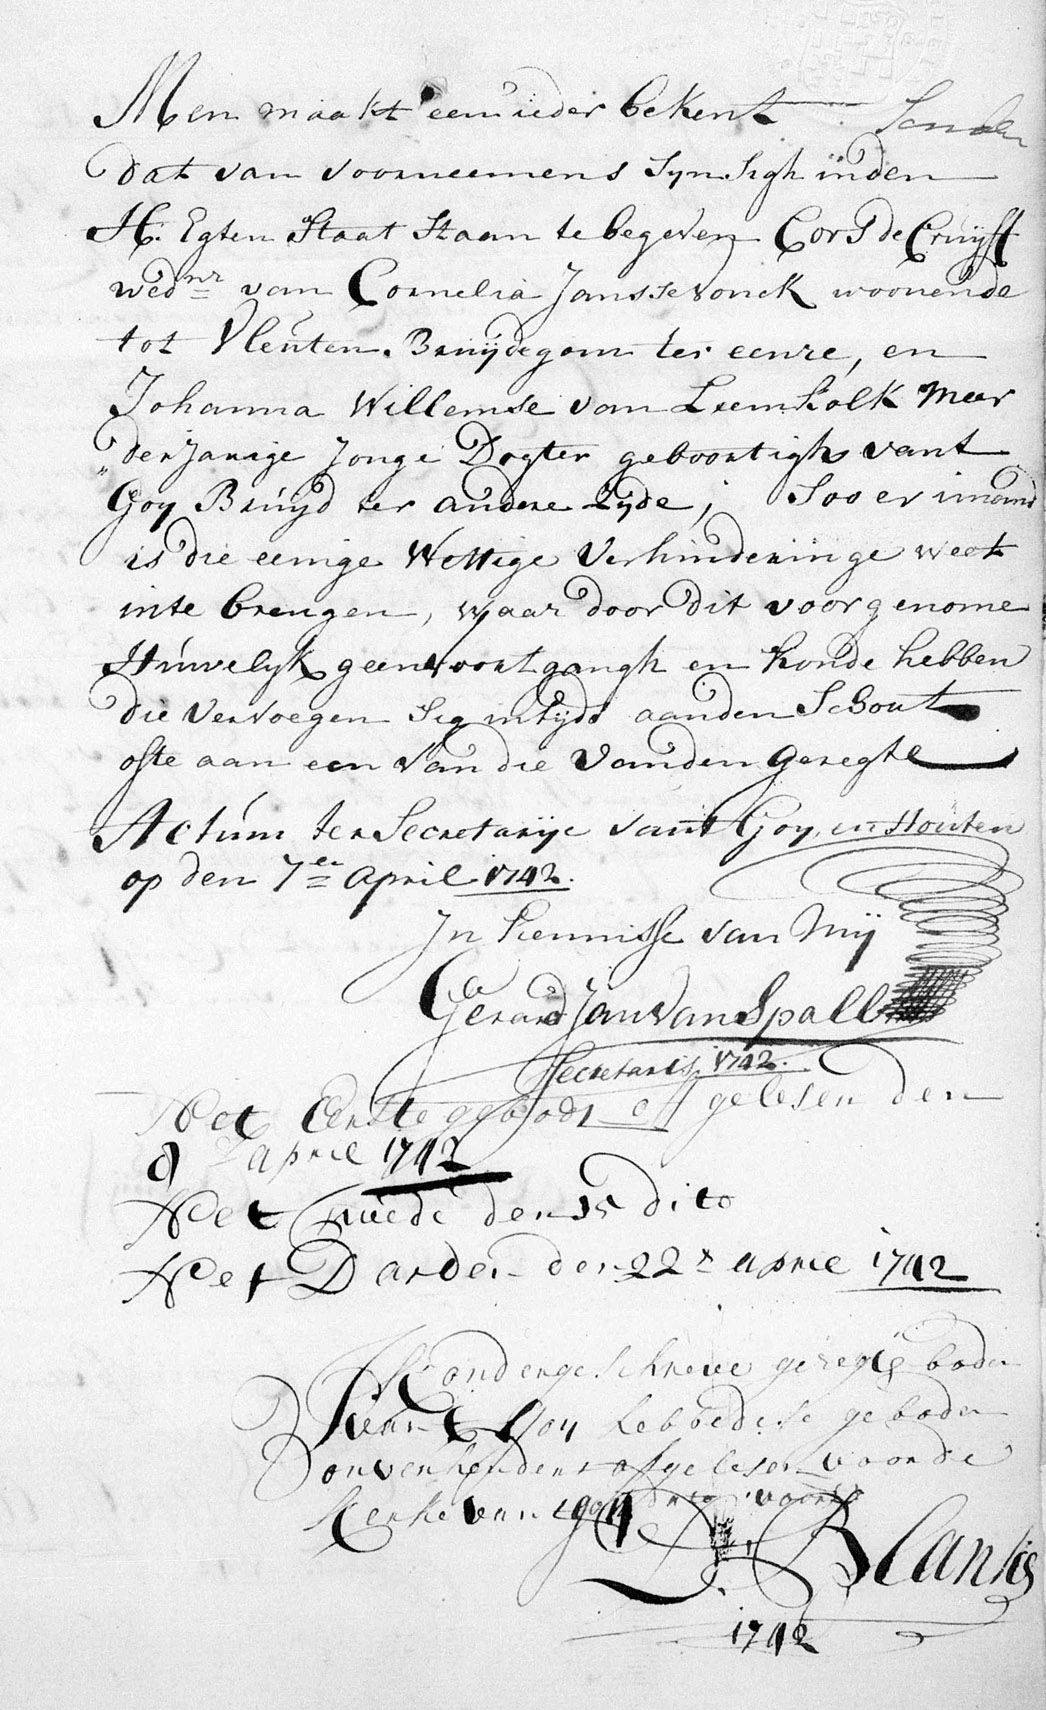 Men maakt een ieder bekent
dat van voorneemens syn sigh inden
H: Egten Staat Staan te begeven Cors de Cruijff
wed.nr van Cornelia Jansse Vonck woonende
tot Vleuten. Bruijdegom ter eenre, en
Johanna Willemse van Leemkolk Meer
"derjarige Jonge Dogter geboortigh vant
Goy Bruyd ter andere Zyde; Soo er imand
is die eenige Wettige Verhinderinge weet
inte brengen, waar door dit voorgenome
Huwelyk geen voortgangh en konde hebben
die Vervoegen sig intyds aanden Schout
ofte aan een van die vanden geregte
Actum ter Secretarije vant Goy en Houten
op den 7en April 1742.
In Kennisse van Mij
Gerard Jan Van Spall
Secretaris 1742.
Het Eerste gebodt afgelesen den
8 april 1742
Het twede den 15 dito
Het Darde den 22 aprie 1742
Ik ondergeschreve geregts bode
van t Goy hebbe dese gebode
onverhindert afgelesen voor de
Kerke van
D. Blankis
1742